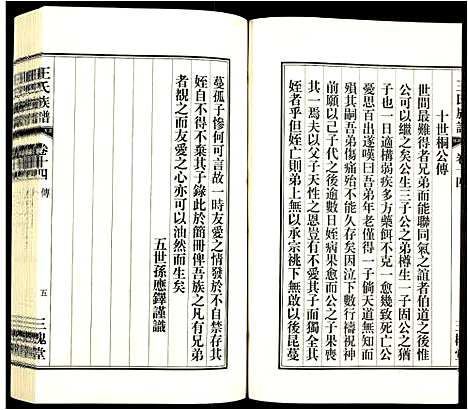 王氏族譜
卷十四
十世桐公傳
世間最難得者兄弟而能聯同氣之誼者伯道之後惟
公可以繼之矣公生三子公之弟樽生一子固公之猶
子也一日適構弱疾多方藥餌不克一愈幾致公之
憂思百出遂嘆曰吾弟年老僅得一子倘天道無知
殞其嗣吾弟傷痛殆不能久存矣因天天清夜祈禱祝神
前願以己子代之後逾數日姪病果愈而公之子果卒
其一焉夫以父子天性之恩豈有不愛其子而獨全其
姪者乎但姪亡則弟亡弟亡將無以承宗祧下無以啟後昆蔓
蔓孤子慘何可言故一時友愛之情發於不自禁存其
姪自不得不棄其子錄此於簡冊俾吾族之凡有兄弟
者覩之而友愛之心亦可以油然而生矣
五世孫應鐸謹識
王氏族譜
卷十四
傳
五
三槐堂